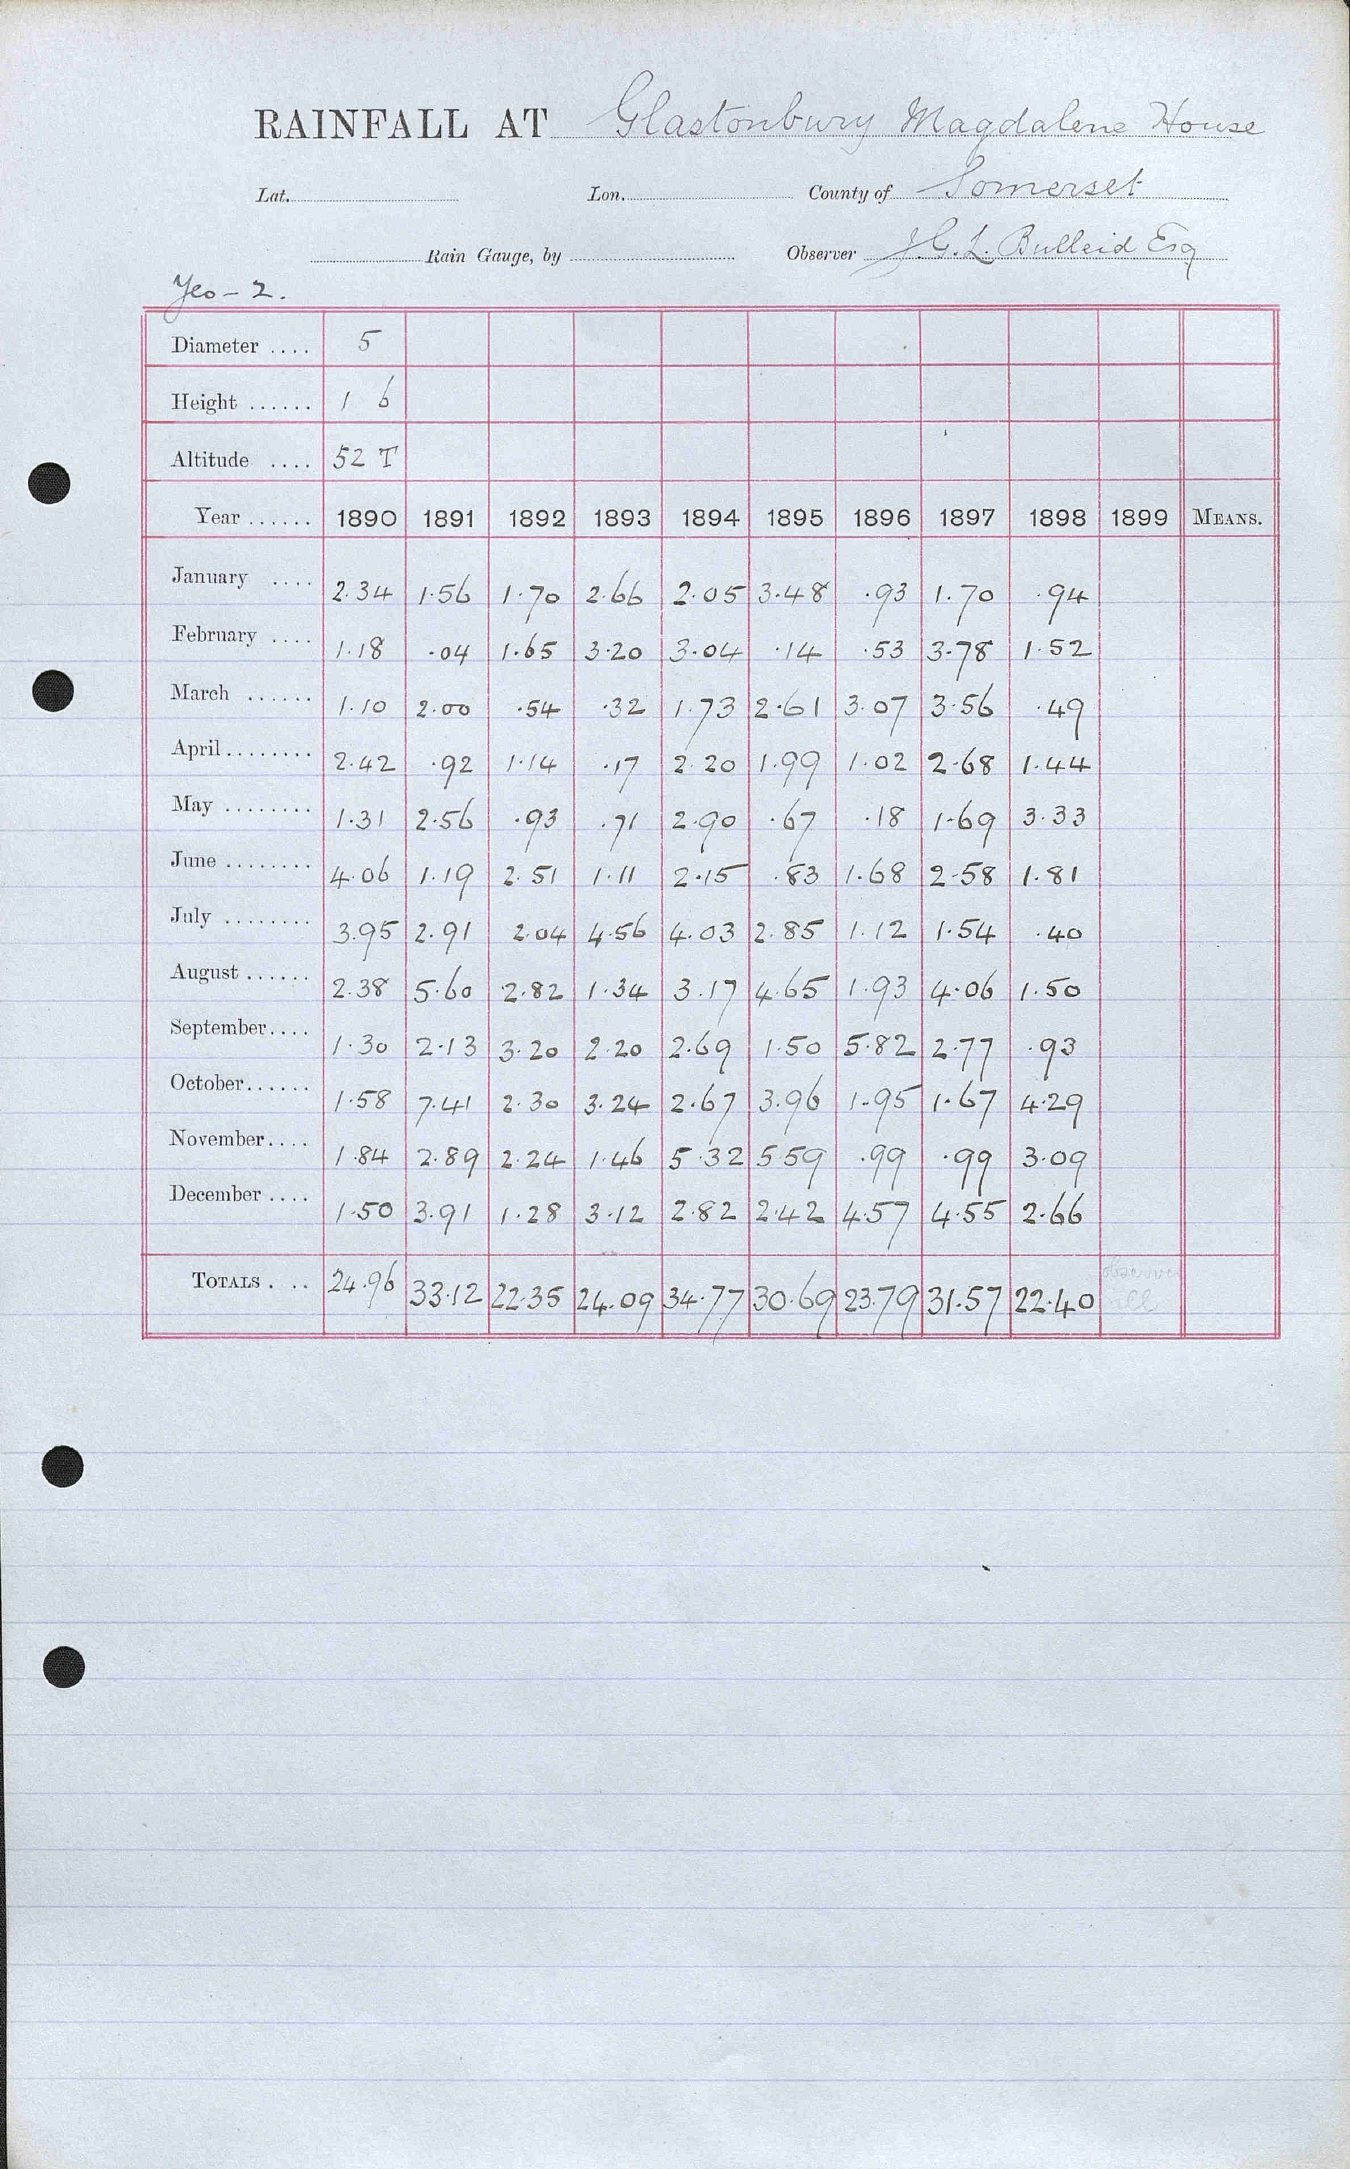 RAINFALL AT Glastonbury Magdalene House
Lat. Lon. County of Somerset
Rain Gauge, by Observer J. G. L. Bulleid Esq
Yeo - 2.
Diameter .... 5
Height ...... 1 6
Altitude .... 52 T
Year ...... 1890 1891 1892 1893 1894 1895 1896 1897 1898 1899 MEANS.
January .... 2.34 1.56 1.70 2.66 2.05 3.48 .93 1.70 .94
February .... 1.18 .04 1.65 3.20 3.04 .14 .53 3.78 1.52
March ...... 1.10 2.00 .54 .32 1.73 2.61 3.07 3.56 .49
April ........ 2.42 .92 1.14 .17 2.20 1.99 1.02 2.68 1.44
May ........ 1.31 2.56 .93 .71 2.90 .67 .18 1.69 3.33
June ........ 4.06 1.19 2.51 1.11 2.15 .83 1.68 2.58 1.81
July ........ 3.95 2.91 2.04 4.56 4.03 2.85 1.12 1.54 .40
August ...... 2.38 5.60 2.82 1.34 3.17 4.65 1.93 4.06 1.50
September.... 1.30 2.13 3.20 2.20 2.69 1.50 5.82 2.77 .93
October...... 1.58 7.41 2.30 3.24 2.67 3.96 1.95 1.67 4.29
November.... 1.84 2.89 2.24 1.46 5.32 5.59 .99 .99 3.09
December .... 1.50 3.91 1.28 3.12 2.82 2.42 4.57 4.55 2.66
TOTALS . .. 24.96 33.12 22.35 24.09 34.77 30.69 23.79 31.57 22.40 observer